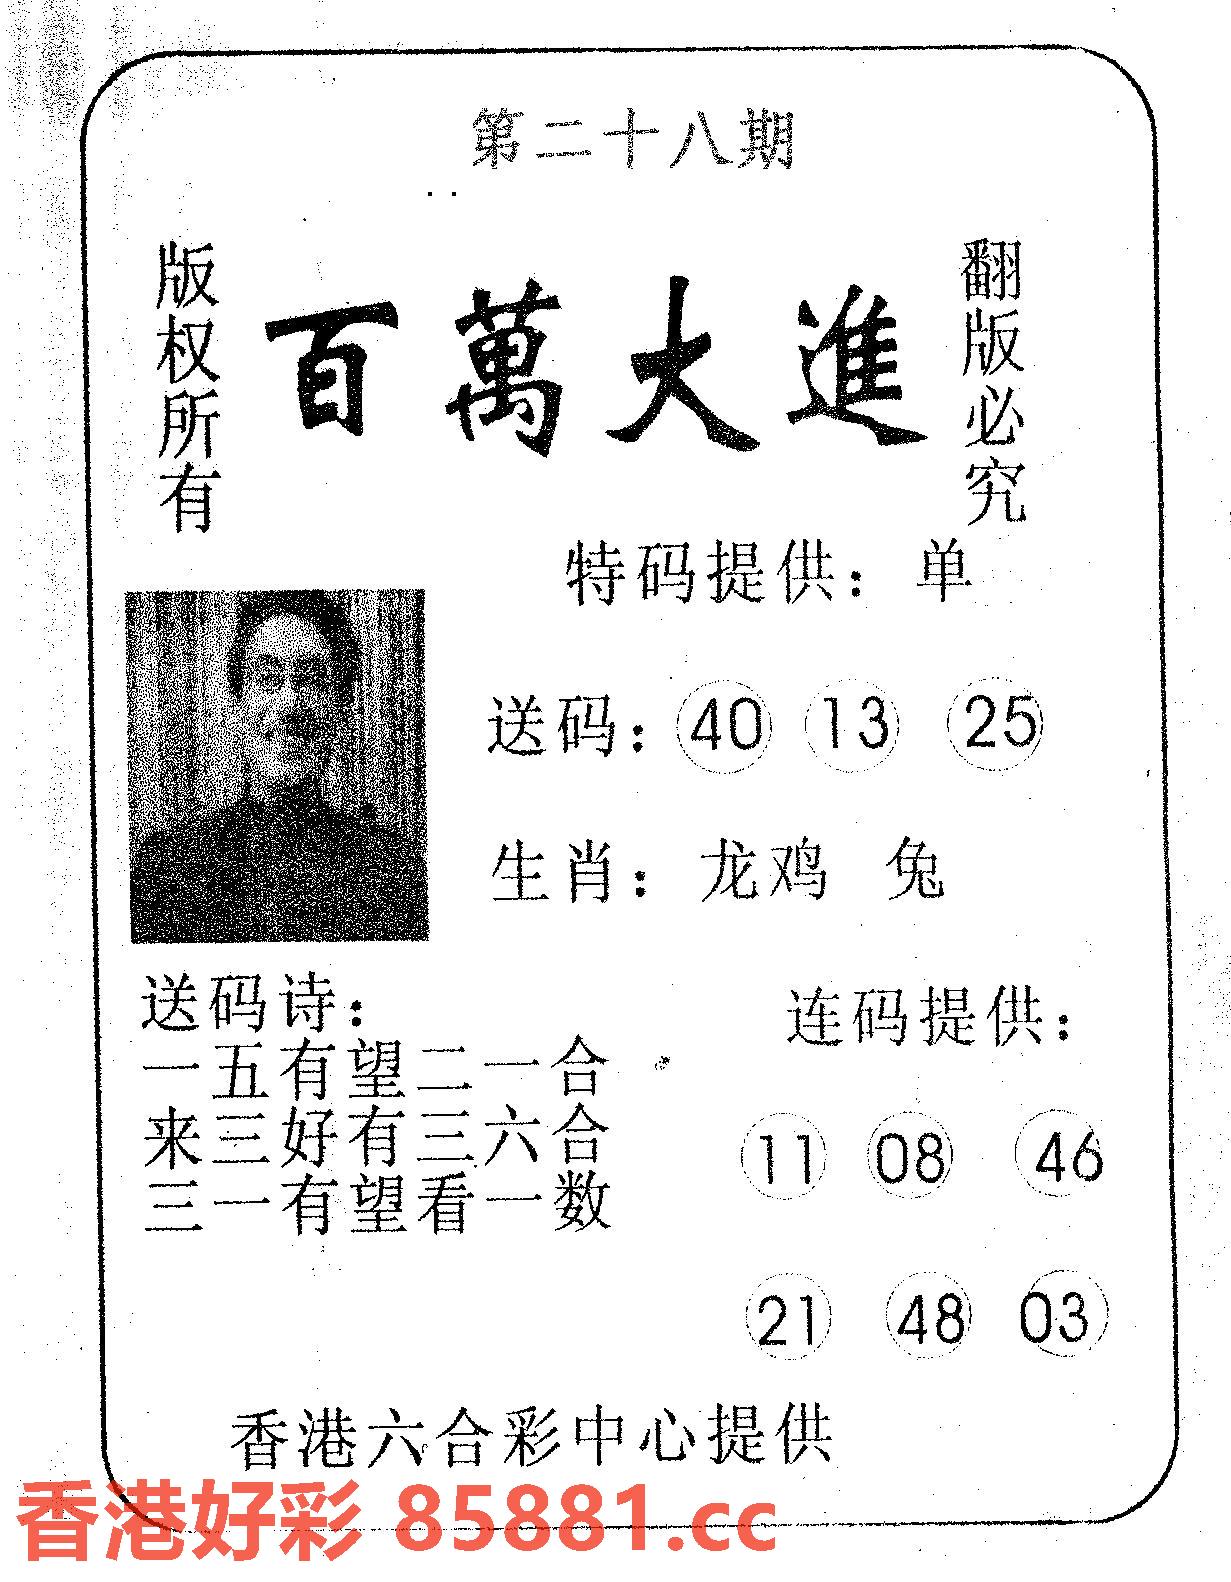 第二十八期
版权所有
百萬大進
翻版必究
特码提供：单
送码：40 13 25
生肖：龙鸡 兔
送码诗：
一五有望二一合
来三好有三六合
三一有望看一数
连码提供：
11 08 46
21 48 03
香港六合彩中心提供
香港好彩 85881.cc